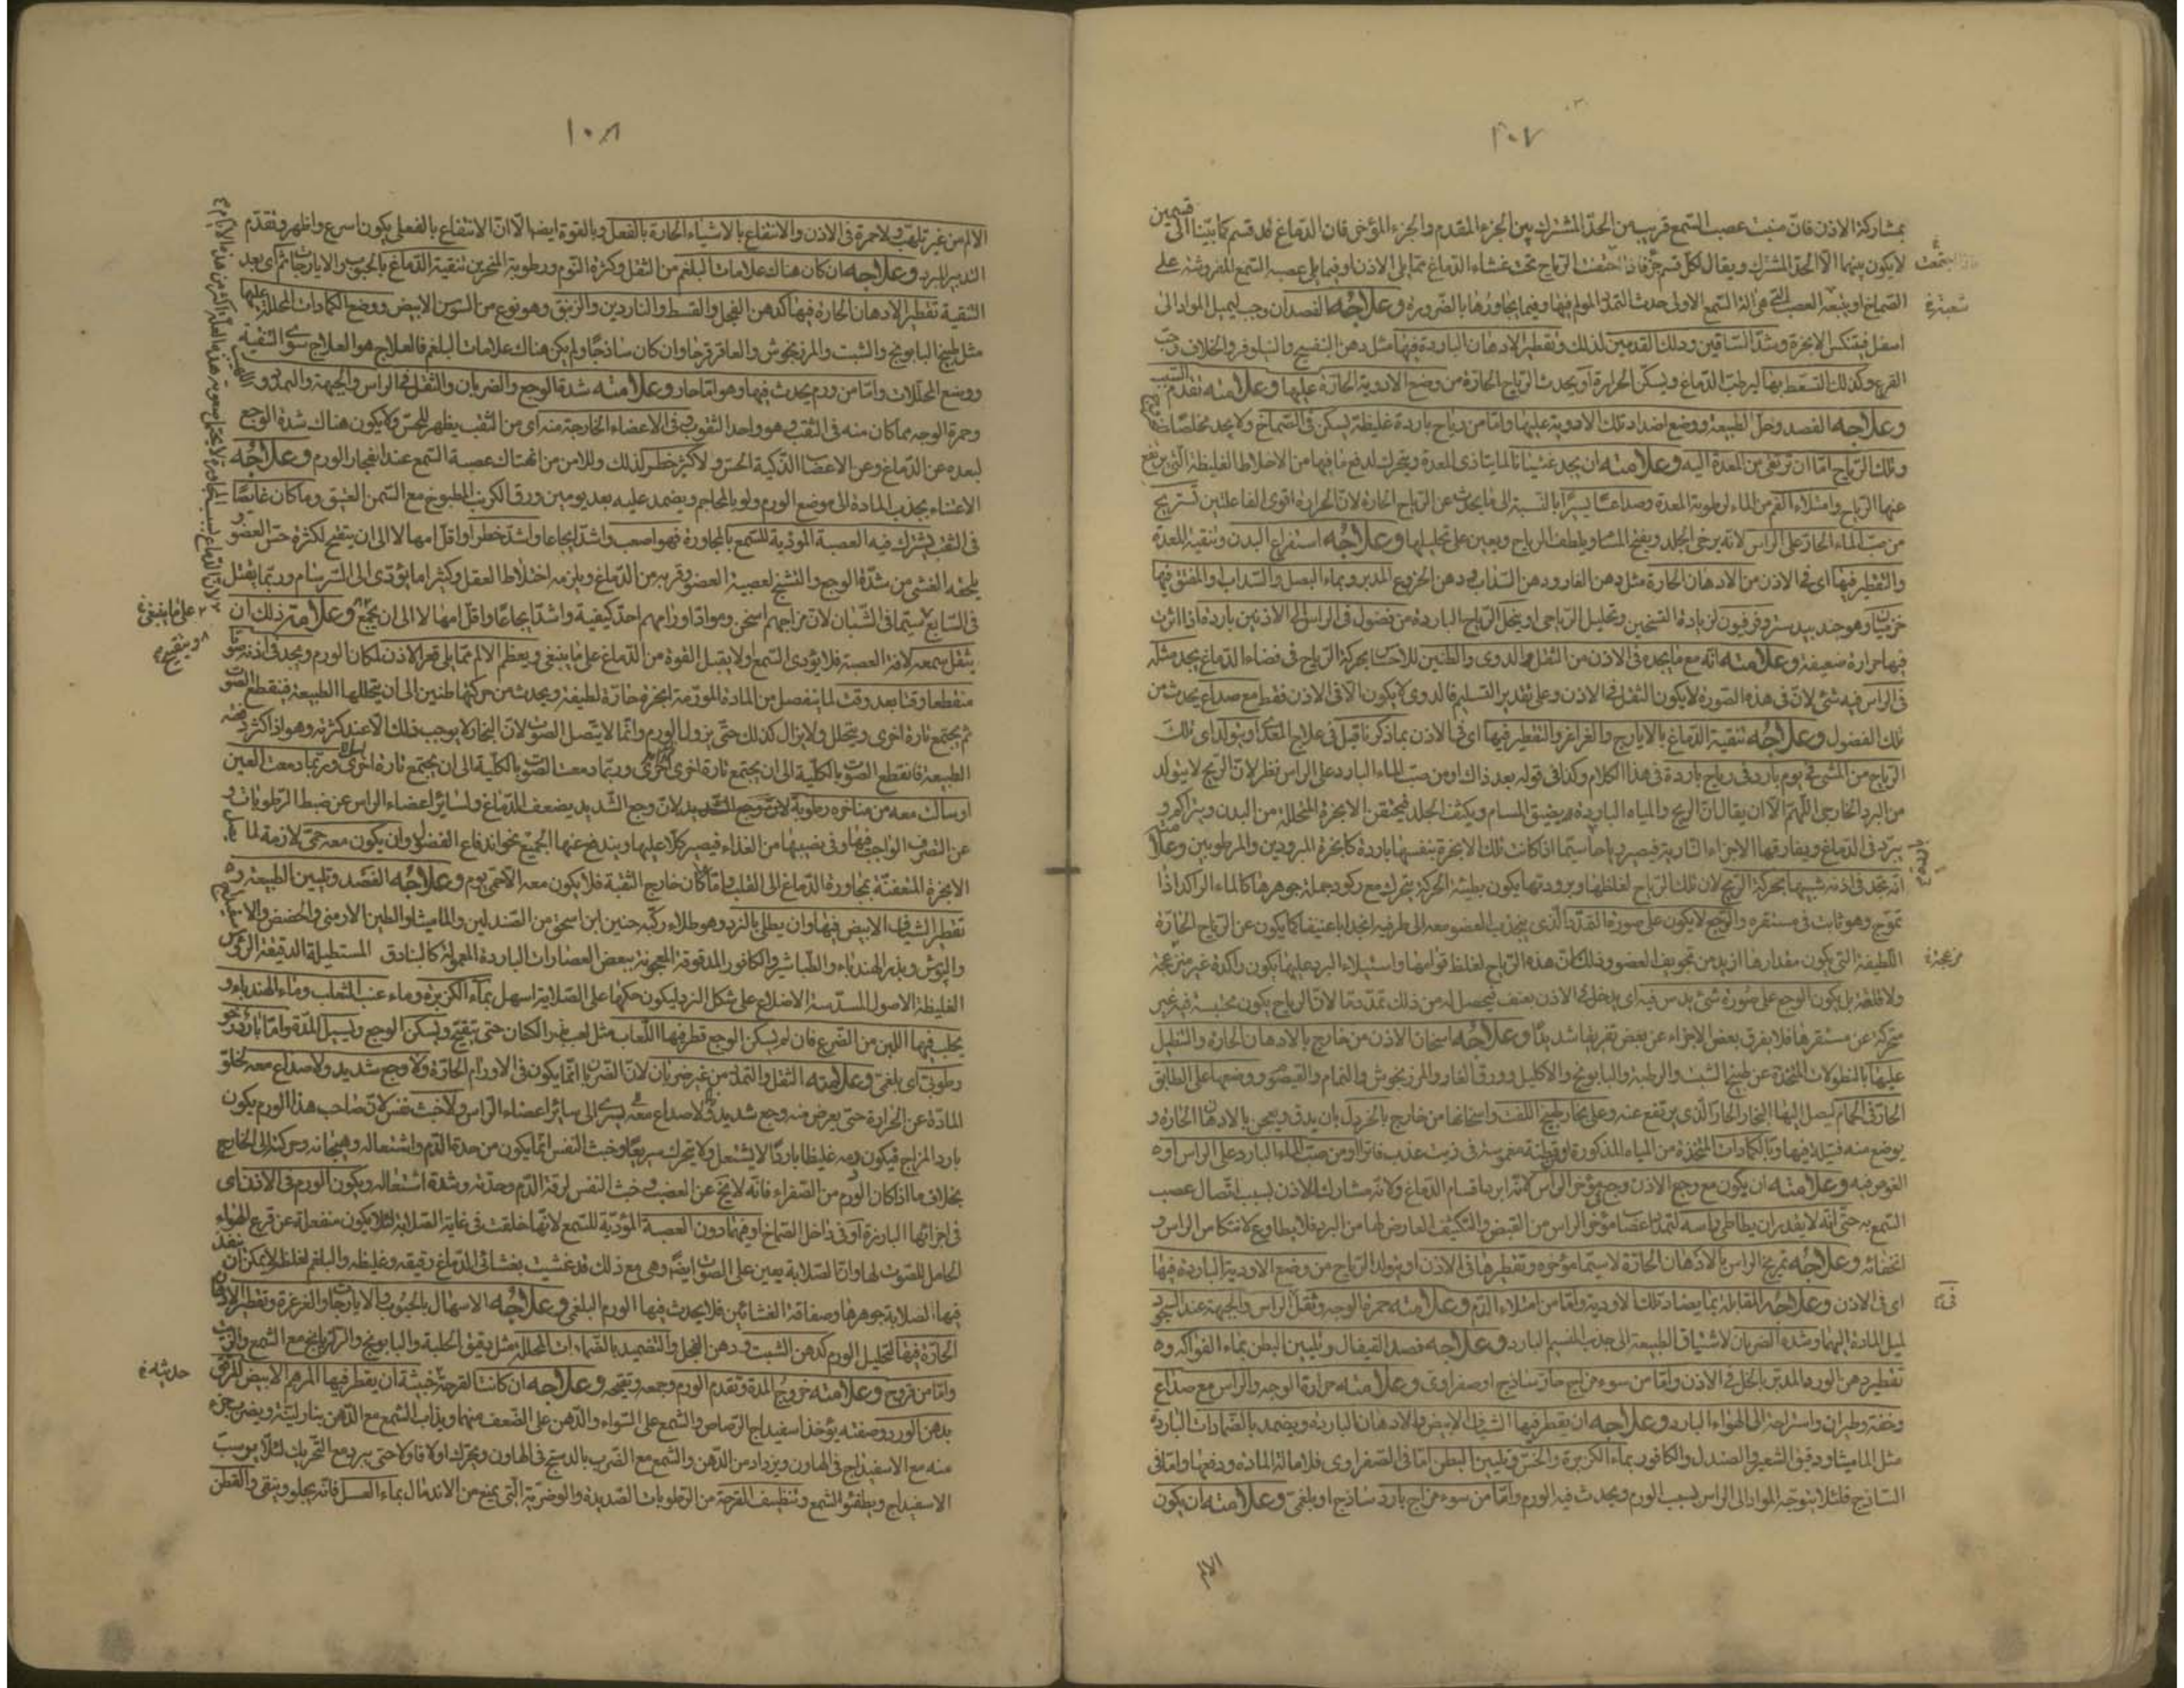 ١٠٧
بمشاركة الاذن فان منبت عصب السمع قريب من الحد المشترك بين الجزء المقدم والجزء المؤخر فان الدماغ قد قسم كما بينا الى قسمين
لا يكون بينهما الا الحد المشترك ويقال لكل قسم جزء فاذا احتقنت الرياح تحت غشاء الدماغ مما يلي الاذن او فيما يلي عصبه السمع المفروشة على
الصماخ او يتبعه العصب التي هي الة السمع الاولى حدث التمدد المولم فيها وفيما يجاورها بالضرورة وعلاجه الفصد ان وجب ليميل المواد الى
اسفل فينتكس الابخرة وشد الساقين ودلك القدمين لذلك وتقطير الادهان الباردة فيها مثل دهن البنفسج والنيلوفر والخلاف وحب
القرع وكذلك التسعط بها ليرطب الدماغ ويسكن الحرارة او يحدث الرياح الحارة من وضع الادوية الحارة عليها وعلامته تقدم السبب
وعلاجه الفصد وحل الطبيعة ووضع اضداد تلك الادوية عليها واما من رياح باردة غليظة يسكن في الصماخ ولا يجد مخلصا
وتلك الرياح اما ان ترتقى من المعدة اليه وعلامته ان يجد غثيانا لما يتاذى المعدة ويتحرك لدفع ما فيها من الاخلاط الغليظة التي يرتفع
عنها الرياح وامتلاء الفم من الماء لرطوبة المعدة وصداعا يسيرا بالنسبة الى ما يحدث عن الرياح الحارة لان الحرارة اقوى الفاعلتين تستريح
من صب الماء الحار على الراس لانه يرخى الجلد ويفتح المسام ويلطف الرياح ويعين على تحليلها وعلاجه استفراغ البدن وتنقية المعدة
والتقطير فيها اي في الاذن من الادهان الحارة مثل دهن الغار ودهن السذاب ودهن الخروع المدبر وبماء البصل والسداب والمفتق فيها
وهو جند بيدستر وفرفيون لزيادة التسخين وتحليل الرياح او يتحلل الرياح الباردة من فضول في الراس الى الاذنين باردة اذا اثرت
فيها حرارة ضعيفة وعلامته انه مع ما يجده في الاذن من الثقل والدوي والطنين للاحساس بحركة الرياح في فضاء الدماغ يجد مثله
في الراس فيه شئ لان في هذه الصورة لا يكون الثقل في الاذن وعلى تقدير التسليم فالدوي لا يكون الا في الاذن فقط مع صداع يحدث من
تلك الفضول وعلاجه تنقية الدماغ بالايارج والغراغر والتقطير فيها اي في الاذن بما ذكرنا قبل في علاج المعدي او يتولد اي تلك
الرياح من المشى في يوم بارد في رياح باردة في هذا الكلام وكذا في قوله بعد ذاك او من صب الماء البارد على الراس نظر لان الريح لا يتولد
من البرد الخارجى اللهم الا ان يقال ان الريح والمياه الباردة يضيق المسام ويكثف الجلد فيحتقن الابخرة المتحللة من البدن ويتراكم و
يبرد في الدماغ ويفارقها الاجزاء النارية فيصير رياحا سيما اذا كانت تلك الابخرة بنفسها باردة كابخرة المبرودين والمرطوبين وعلامته
انه يجد في اذنه شبيها بحركة الريح لان تلك الرياح لغلظها وبرودتها يكون بطيئة الحركة يتحرك مع ركود جملة جوهرها كالماء الراكد اذا
تموج وهو ثابت في مستقره والوجع لا يكون على صورة التمدد الذي ينجذب العضو معه الى طرفيه انجذابا عنيفا كما يكون عن الرياح الحارة
اللطيفة التي يكون مقدارها ازيد من تجويف العضو وذلك ان هذه الرياح لغلظ قوامها واستيلاء البرد عليها يكون راكدة غير منزعجة
ولا قلقة بل يكون الوجع على صورة شئ يدس فيه اي يدخل في الاذن بعنف فيحصل له من ذلك تمدد ما لان الرياح يكون محتبسة فيه غير
متحركة عن مستقرها فلا يفرق بعض الاجزاء عن بعض تفريقا شديدا وعلاجه اسخان الاذن من خارج بالادهان الحارة والتنطيل
عليها بالنطولات المتخذة عن طبيخ الشبت والرطبة والبابونج والاكليل وورق الغار والمرزنجوش والنمام والقيصوم ووضعها على الطابق
الحار في الحمام ليصل اليها البخار الحار الذي يرتفع عنه وعلى بخار طبيخ اللفت واسخانها من خارج بالخردل بان يدق ويعجن بالادهان الحارة و
يوضع منه فتيلة فيها وبالكمادات المتخذة من المياه المذكورة او قطنة مغموسة في زيت عذب فاترا او من صب الماء البارد على الراس او
الغوص فيه وعلامته ان يكون مع وجع الاذن وجع مؤخر الراس لانه ابرد اقسام الدماغ ولانه مشارك للاذن بسبب اتصال عصب
السمع به حتى انه لا يقدر ان يطاطى راسه لتمدد اعضاء مؤخر الراس من القبض والتكثيف العارض لها من البرد فلا يطاوع لانتكاس الراس و
انحنائه وعلاجه تمريخ الراس بالادهان الحارة لا سيما مؤخره وتقطيرها في الاذن او يتولد الرياح من وضع الادوية الباردة فيها
اي في الاذن وعلاجه المقابلة بما يضاد تلك الادوية واما من امتلاء الدم وعلامته حمرة الوجه وثقل الراس والجبهة عند السجود
لميل المادة اليهما وشدة الضربان لاشتياق الطبيعة الى جذب النسيم البارد وعلاجه فصد القيفال وتليين البطن بماء الفواكه و
تقطير دهن الورد المدبر بالخل في الاذن واما من سوء مزاج حار ساذج او صفراوى وعلامته حرارة الوجه والراس مع صداع
وخفة وطيران واستراحة الى الهواء البارد وعلاجه ان يقطر فيها الشياف الابيض والادهان الباردة ويضمد بالضمادات الباردة
مثل الماميثا ودقيق الشعير والصندل والكافور بماء الكزبرة والخس وتليين البطن اما في الصفراوى فلامالة المادة ودفعها واما في
الساذج فلئلا يتوجه المواد الى الراس بسبب الورم ويحدث فيه الورم واما من سوء مزاج بارد ساذج او بلغمى وعلامته ان يكون
الالم
١٠٨
الالم من غير تلهب ولا حمرة في الاذن والانتفاع بالاشياء الحارة بالفعل وبالقوة ايضا الا ان الانتفاع بالفعلى يكون اسرع واظهر وتقدم
التدبير المبرد وعلاجه ان كان هناك علامات البلغم من الثقل وكثرة النوم ورطوبة المنخرين تنقية الدماغ بالحبوب والايارجات ثم اي بعد
التنقية تقطير الادهان الحارة فيها كدهن الفجل والقسط والناردين والزنبق وهو نوع من السوسن الابيض ووضع الكمادات المحللة عليها
مثل طبيخ البابونج والشبت والمرزنجوش والعاقرقرحا وان كان ساذجا ولم يكن هناك علامات البلغم فالعلاج هو العلاج سوى التنقية
ووضع المحللات واما من ورم يحدث فيها وهو اما حار وعلامته شدة الوجع والضربان والثقل في الراس والجبهة والتمدد و
وحمرة الوجه مما كان منه في الثقب وهو واحد الثقوب في الاعضاء الخارجة منه اي من الثقب يظهر للحس ولا يكون هناك شدة الوجع
لبعده عن الدماغ وعن الاعضاء الذكية الحس ولا كثير خطر لذلك وللامن من انهتاك عصبة السمع عند انفجار الورم وعلاجه
الاعتناء بجذب المادة الى موضع الورم ولو بالمحاجم ويضمد عليه بعد يومين ورق الكرنب المطبوخ مع السمن العتيق وما كان غايصا
في الثقب يشترك فيه العصبة المؤدية للسمع بالمجاورة فهو اصعب واشد ايجاعا واشد خطرا واقل امهالا الى ان يتقيح لكثرة حس العضو
يلحقه الغشى من شدة الوجع والتشنج لعصبية العضو وقربه من الدماغ ويلزمه اختلاط العقل وكثيرا ما يؤدي الى السرسام وربما يقتل
في السابع سيما في الشبان لان مزاجهم اسخن ومواد اورامهم احد كيفية واشد ايجاعا واقل امهالا الى ان يجمع وعلامة ذلك ان
يثقل سمعه لافة العصبة فلا يؤدى السمع ولا يقبل القوة من الدماغ على ما ينبغي ويعظم الالم مما يلي قعر الاذن لمكان الورم ويجد في اذنه صوتا
منقطعا وقتا بعد وقت لما ينفصل من المادة المورمة ابخرة حارة لطيفة ويحدث من حركتها طنين الى ان يتحللها الطبيعة فينقطع الصوت
ثم يجتمع تارة اخرى ويتحلل ولا يزال كذلك حتى يزول الورم وانما لا يتصل الصوت لان البخار لا يوجب ذلك الا عند كثرته وهو اذا كثر دفعته
الطبيعة فانقطع الصوت بالكلية الى ان يجتمع تارة اخرى وربما دمعت العين
او سالت معه من مناخره رطوبة لان وجع الشديد يضعف الدماغ ولسائر اعضاء الراس عن ضبط الرطوبات و
عن التصرف الواجب فيها وفي نضجها من الغذاء فيصير كلا عليها ويندفع عنها الجميع نحو اندفاع الفضل وان يكون معه حمى لازمة لما يصل
الابخرة المتعفنة بمجاورة الدماغ الى القلب واما ما كان خارج الثقبة فلا يكون معه الا حمى يوم وعلاجه الفصد وتليين الطبيعة و
تقطير الشياف الابيض فيها وان يطلى بالنرد وهو طلاء ركبه حنين ابن اسحق من الصندلين والماميثا والطين الارمنى والحضض والاسفيداج
والبوش وبذر الهندباء والطباشير والكافور المدقوقة المعجونة ببعض العصارات الباردة المعمولة كالبنادق المستطيلة الدقيقة الرؤس
الغليظة الاصول المسدسة الاضلاع على شكل النرد ليكون حكها على الصلاية اسهل بماء الكزبرة وماء عنب الثعلب وماء الهندباء و
يحلب فيها اللبن من الضرع فان لم يسكن الوجع قطر فيها اللعاب مثل لعاب بزر الكتان حتى يتقيح ويسكن الوجع ويسيل المدة واما بارد رخو
رطوبى اي بلغمى وعلامته الثقل والتمدد من غير ضربان لان الضربان انما يكون في الاورام الحارة ولا وجع شديد ولا صداع معه لخلو
المادة عن الحرارة حتى يعرض منه وجع شديد ولا صداع معه يسرى الى سائر اعضاء الراس ولا خبث نفس لان صاحب هذا الورم يكون
بارد المزاج فيكون دمه غليظا باردا لا يشتعل ولا يتحرك سريعا وخبث النفس انما يكون من حدة الدم واشتعاله وهيجانه وحركته الى الخارج
بخلاف ما اذا كان الورم من الصفراء فانه لا يخ عن الغضب وخبث النفس لرقة الدم وحدته وشدة اشتعاله ويكون الورم في الاذن اي
في اجزائها البارزة او في داخل الصماخ وفيها دون العصبة المؤدية للسمع لانها خلقت في غاية الصلابة لئلا يكون منفعلة عن قرع الهواء
الحامل للصوت لها وان الصلابة يعين على الصوت ايضا وهي مع ذلك قد غشيت بغشائى الدماغ رقيقه وغليظه والبلغم لغلظه لا يمكن ان ينفذ
فيها لصلابة جوهرها وصفاقة الغشائين فلا يحدث فيها الورم البلغمى وعلاجه الاسهال بالحبوب والايارجات والغرغرة وتقطير الادهان
الحارة فيها لتحليل الورم كدهن الشبت ودهن الفجل والتضميد بالضمادات المحللة مثل دقيق الحلبة والبابونج والرازيانج مع الشمع والزيت
واما من قروح وعلامته خروج المدة وتقدم الورم وجمعه وتقيحه وعلاجه ان كانت القرحة خبيثة ان يقطر فيها المرهم الابيض المرقق
بدهن الورد وصفته يؤخذ اسفيداج الرصاص والشمع على السواء والدهن على الضعف منهما ويذاب الشمع مع الدهن بنار لينة ويضرب جزء
منه مع الاسفيداج في الهاون ويزداد من الدهن والشمع مع الضرب بالدستج في الهاون ويحرك اولا فاولا حتى يبرد مع التحريك لئلا يرسب
الاسفيداج ويطفو الشمع وتنظيف القرحة من الرطوبات الصديدية والوضرية التي يمنع من الاندمال بماء العسل فانه يجلو وينقى والقطن
على ما ينبغي
ويتقيح
حدثه